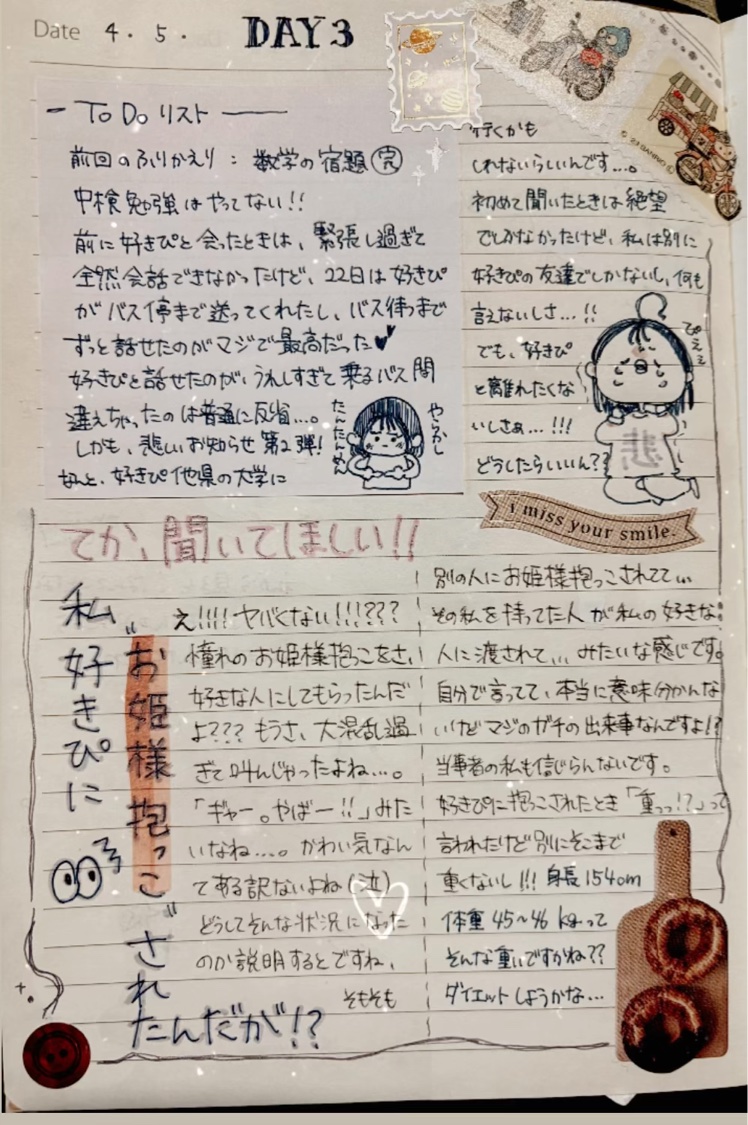 Date 4.5.
DAY3
- To Do リスト ―
前回のふりかえり：数学の宿題 完
中検勉強はやってない!!
前に好きぴと会ったときは、緊張し過ぎて
全然会話できなかったけど、22日は好きぴ
がバス停まで送ってくれたし、バス待つまで
ずっと話せたのがマジで最高だった♥
好きぴと話せたのが、うれしすぎて乗るバス間
違えちゃったのは普通に反省…。
しかも、悲しいお知らせ第2弾!
なんと、好きぴ他県の大学に
たんたんめん
やらかし
行くかも
しれないらしいんです…。
初めて聞いたときは絶望
でしかなかったけど、私は別に
好きぴの友達でしかないし、何も
言えないしさ…!!
でも、好きぴ
と離れたくな
いしさぁ…!!!
どうしたらいいん??
ぴえぇ
悲
i miss your smile.
© '23 SANRIO
てか、聞いてほしい!!
私好きぴに
"お姫様抱っこ"され
たんだが!?
え!!!! ヤバくない!!!???
憧れのお姫様抱っこをさ、
好きな人にしてもらったんだ
よ??? もうさ、大混乱過
ぎて叫んじゃったよね…。
「ギャー。やばー!!」みた
いなね…。かわい気なん
てある訳ないよね(泣)
どうしてそんな状況になった
のか説明するとですね、
そもそも
別の人にお姫様抱っこされてて…
その私を持ってた人が私の好きな
人に渡されて…みたいな感じです。
自分で言ってて、本当に意味分かんな
いけどマジのガチの出来事なんですよ!?
当事者の私も信じらんないです。
好きぴに抱っこされたとき「重っっ!?」って
言われたけど別にそこまで
重くないし!!! 身長154cm
体重45~46kgって
そんな重いですかね??
ダイエットしようかな…